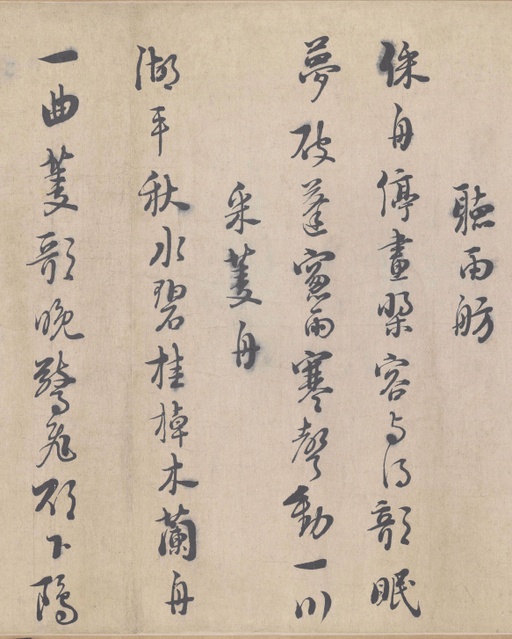 聽雨舫
綵舟停畫槳容與得欹眠
夢破蓬窻雨寒聲動一川
采菱舟
湖平秋水碧桂棹木蘭舟
一曲菱歌晚驚飛欲下鷗